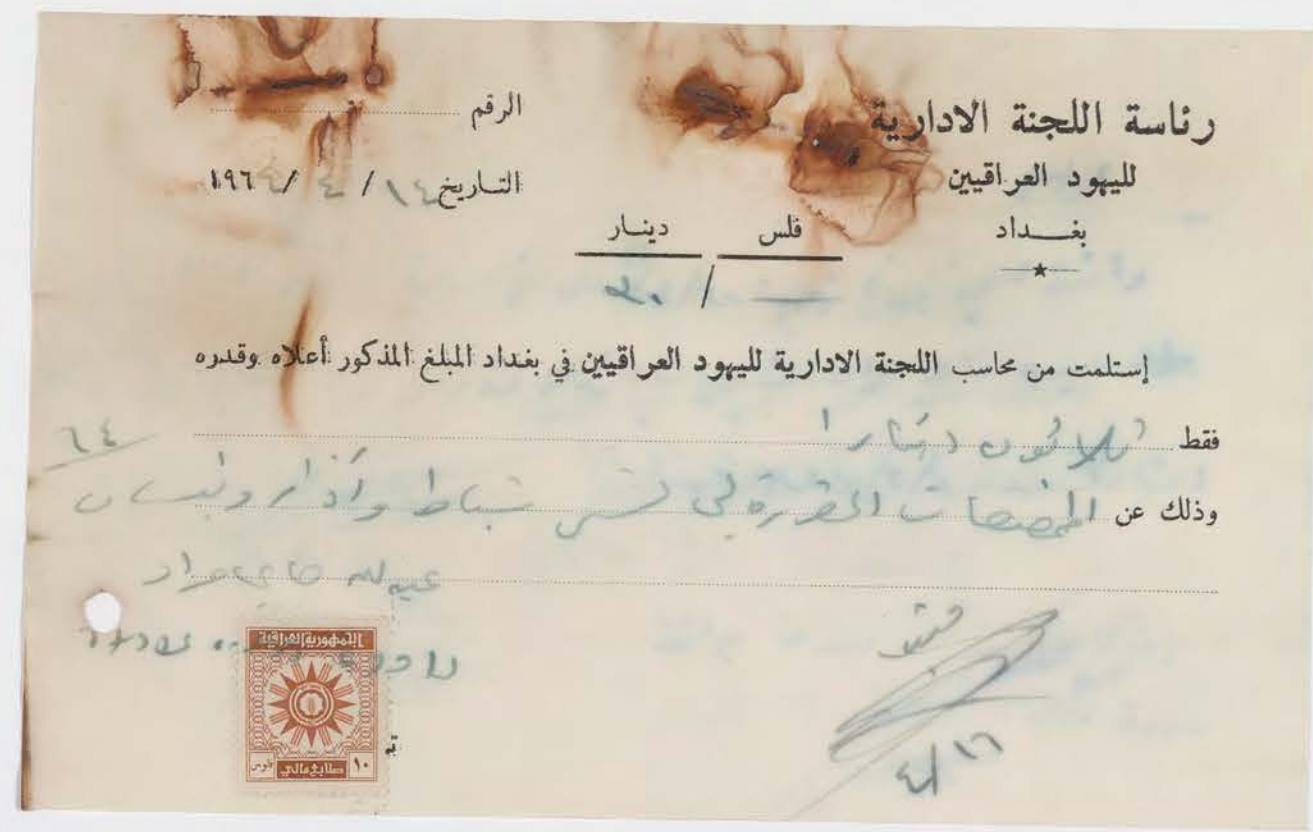 رئاسة اللجنة الادارية
لليهود العراقيين
بغــداد
الرقم
التاريخ ١٤ / ٤ / ١٩٦٤
فلس دينــار
— / ٣٠
إستلمت من محاسب اللجنة الادارية لليهود العراقيين في بغداد المبلغ المذكور أعلاه وقدره
فقط ثلاثون دينارا
وذلك عن المخصصات المقررة لي شباط وآذار ونيسان ٦٤
عبدالله مراد
الجمهورية العراقية
١٠ طابع مالي فلوس
١٦/٤